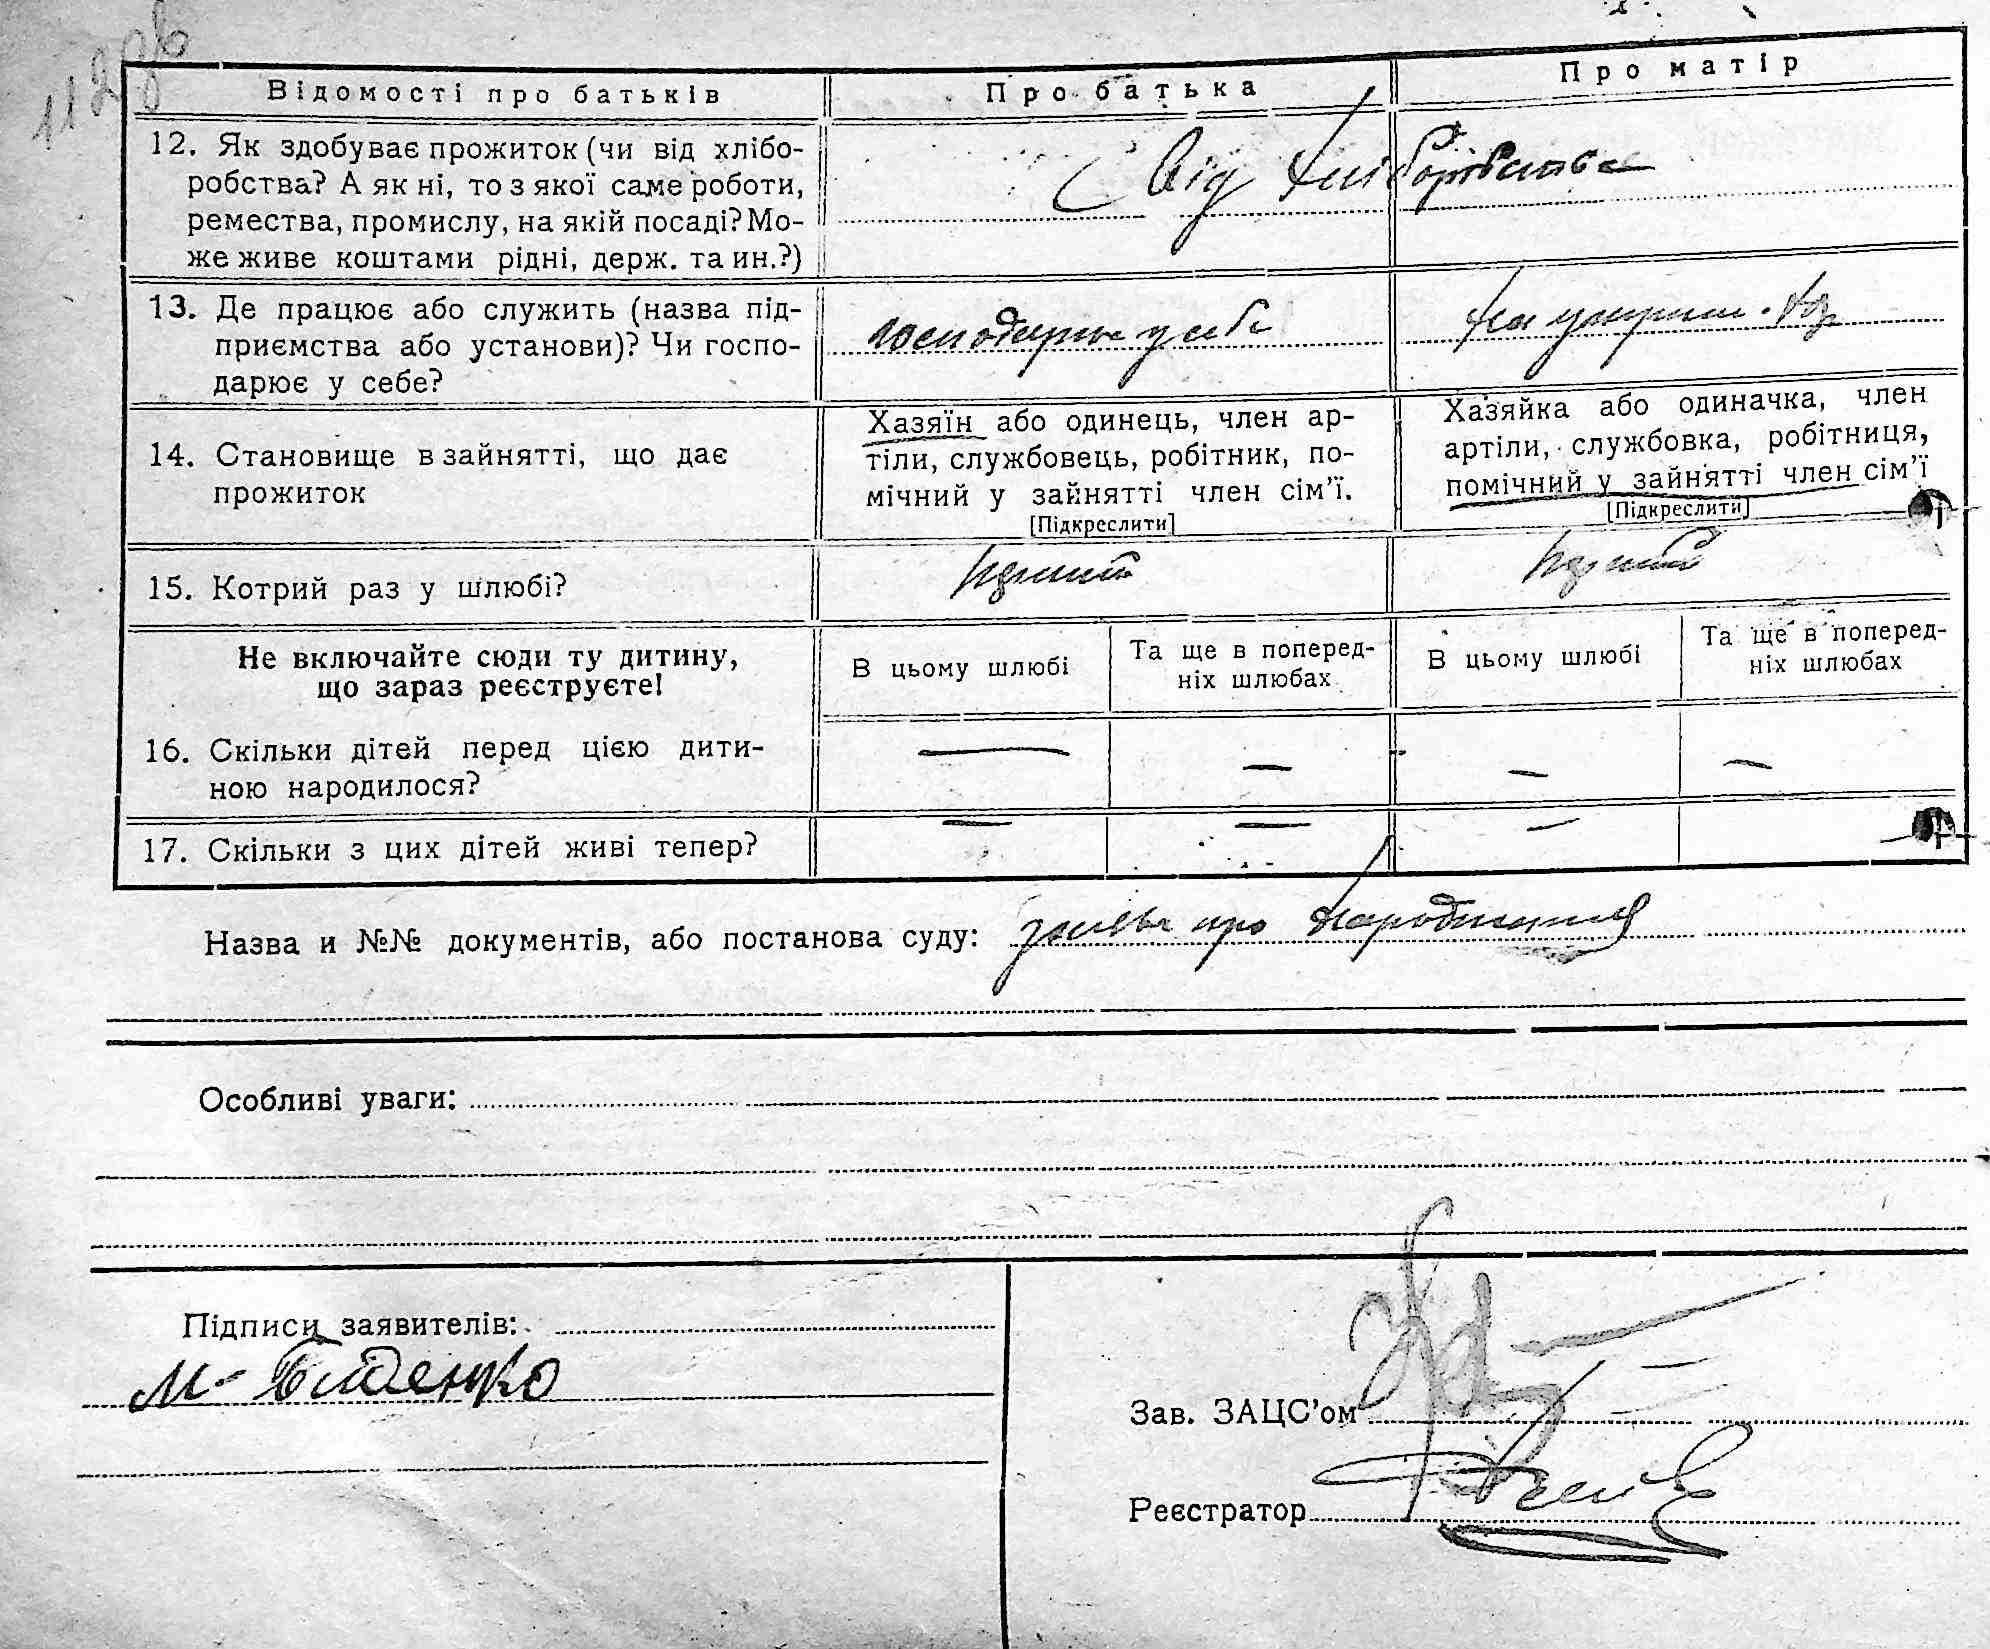 Відомості про батьків
Про батька
Про матір
12. Як здобуває прожиток (чи від хлібо-
робства? А як ні, то з якої саме роботи,
ремества, промислу, на якій посаді? Мо-
же живе коштами рідні, держ. та ин.?)
Від хліборобства
13. Де працює або служить (назва під-
приємства або установи)? Чи госпо-
дарює у себе?
господарює у себе
14. Становище в зайнятті, що дає
прожиток
Хазяїн або одинець, член ар-
тіли, службовець, робітник, по-
мічний у зайнятті член сім’ї.
[Підкреслити]
Хазяйка або одиначка, член
артіли, службовка, робітниця,
помічний у зайнятті член сім’ї
[Підкреслити]
15. Котрий раз у шлюбі?
Не включайте сюди ту дитину,
що зараз реєструєте!
В цьому шлюбі
Та ще в поперед-
ніх шлюбах
В цьому шлюбі
Та ще в поперед-
ніх шлюбах
16. Скільки дітей перед цією дити-
ною народилося?
— — — —
17. Скільки з цих дітей живі тепер?
— — —
Назва и №№ документів, або постанова суду: заява про народження
Особливі уваги:
Підписи заявителів:
М. Біденко
Зав. ЗАЦС’ом
Реєстратор